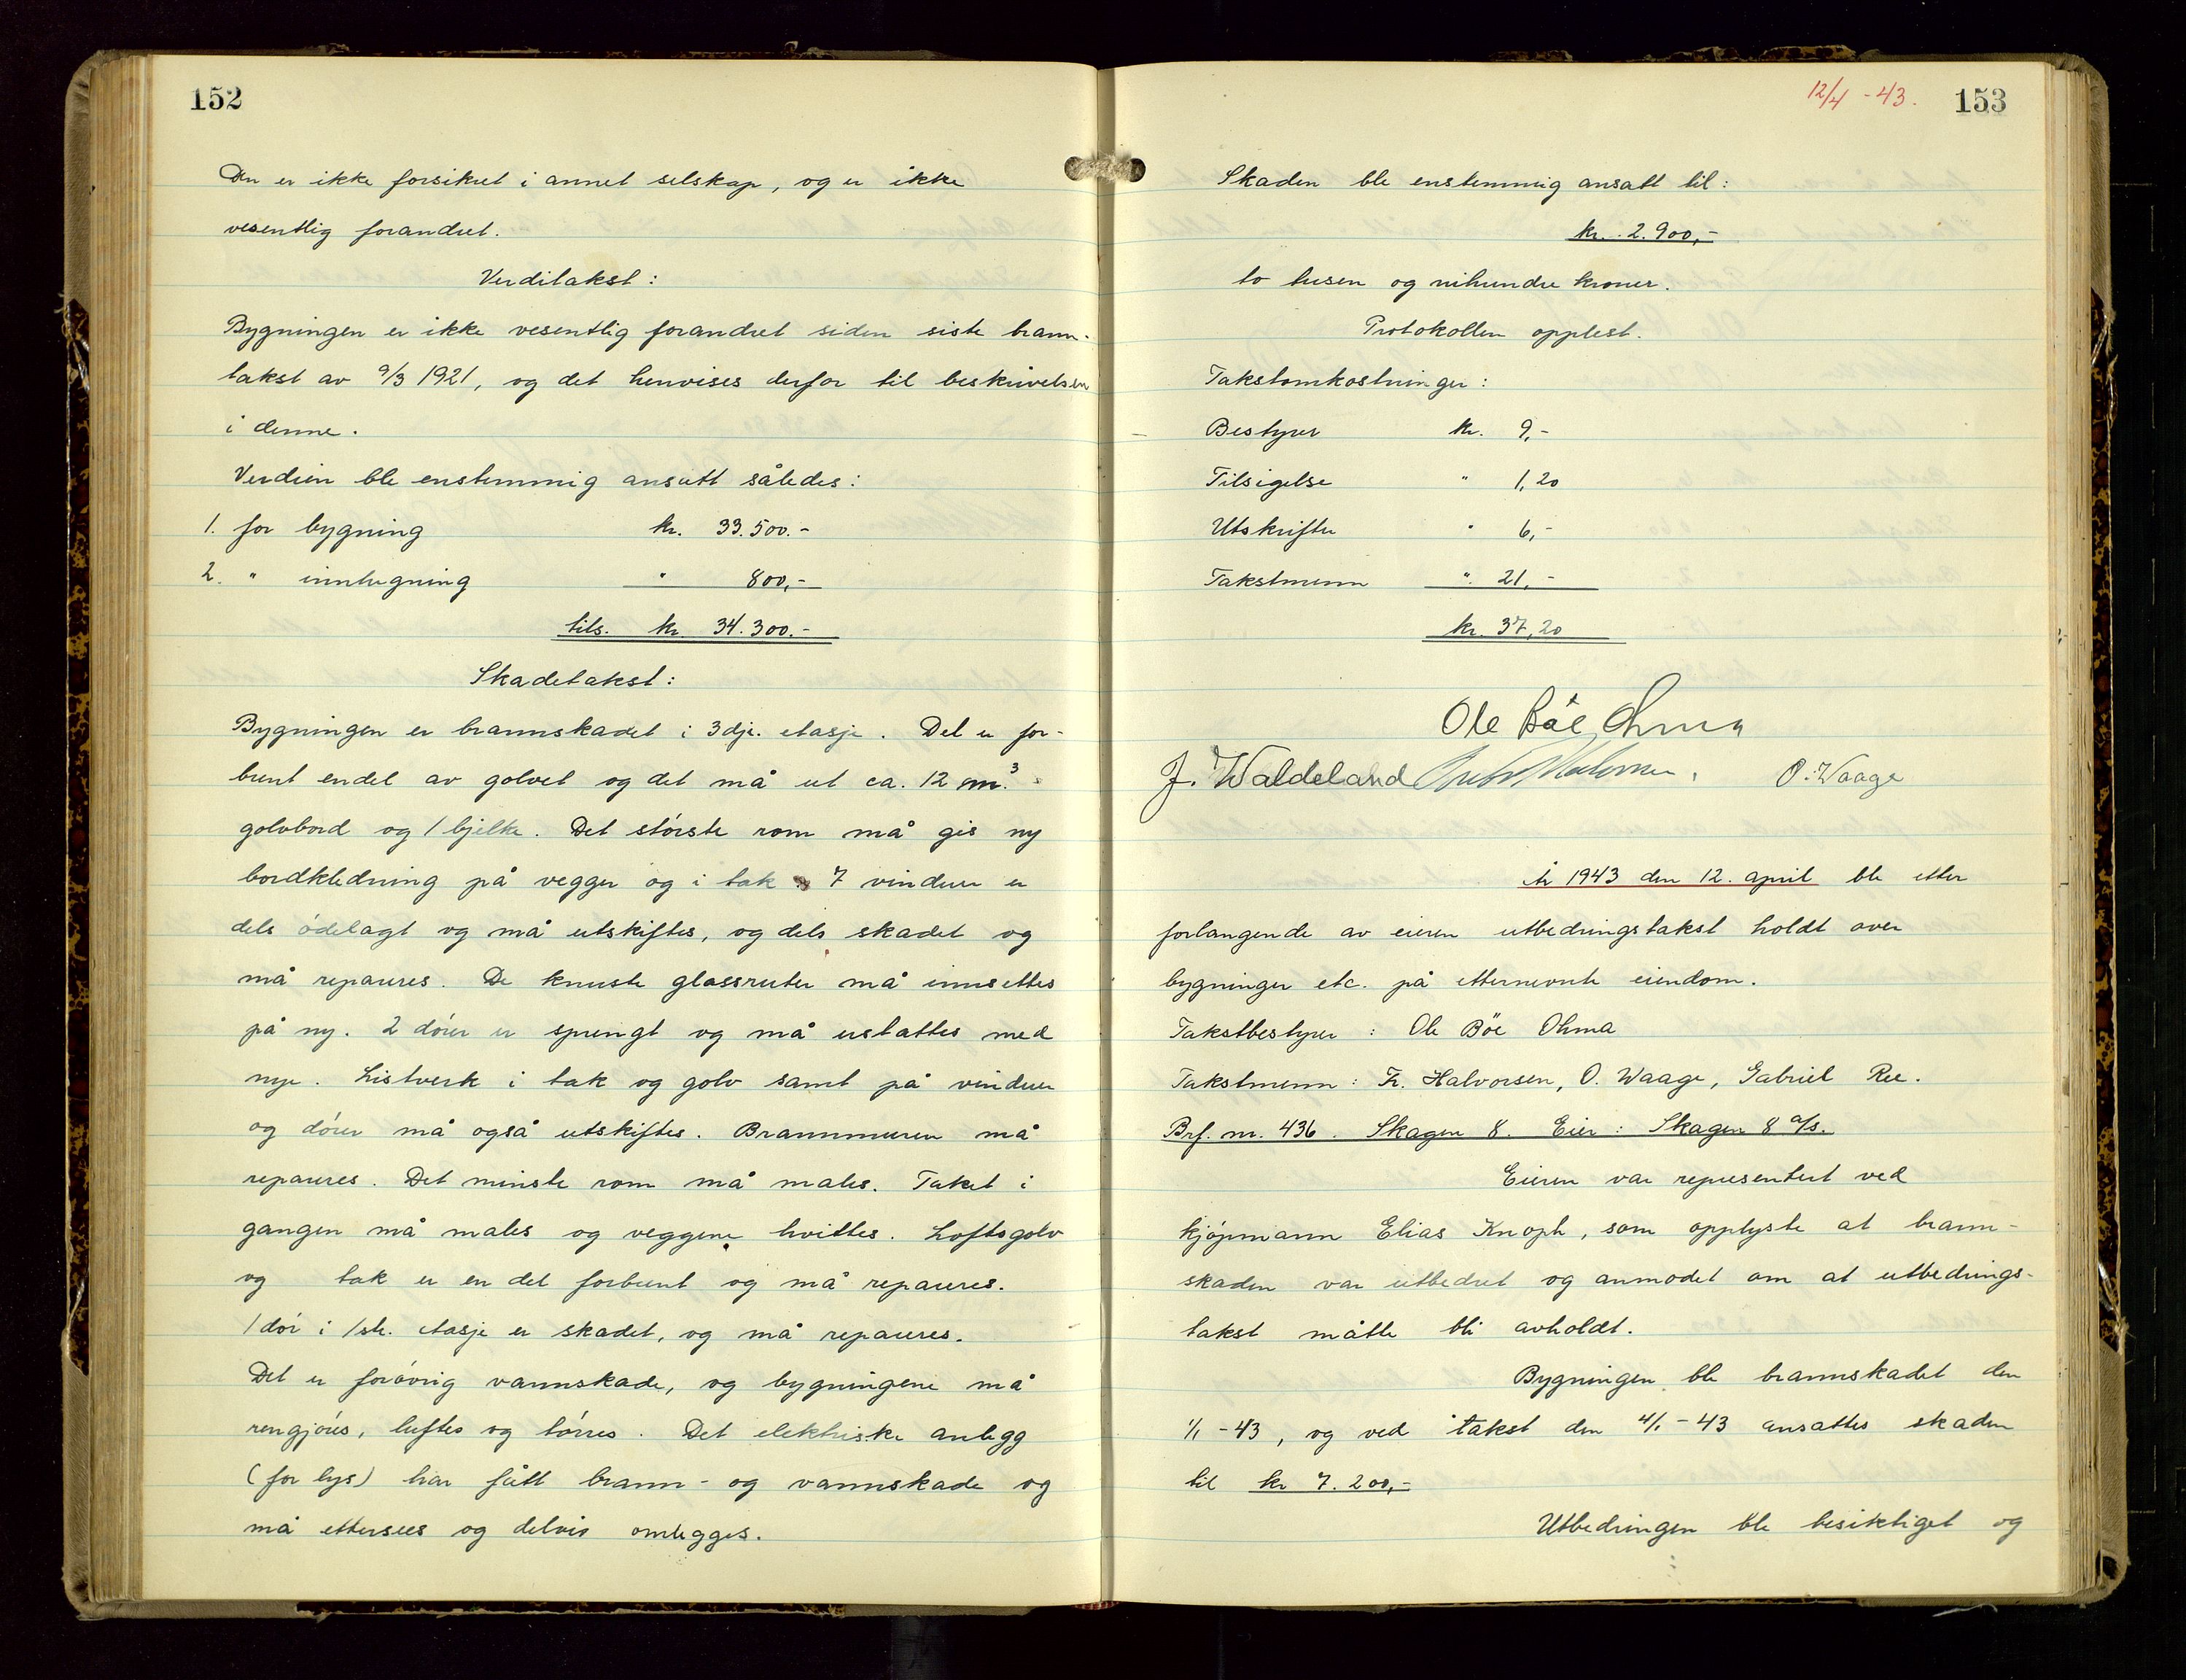 152
Den er ikke forsikret i annet selskap, og er ikke
vesentlig forandret.
Verditakst:
Bygningen er ikke vesentlig forandret siden siste brann-
takst av 9/3 1921, og det henvises derfor til beskrivelsen
i denne.
Verdien ble enstemmig ansatt således:
1. for bygning kr. 33.500.-
2. " innlegning " 800,-
tils. kr 34.300.-
Skadetakst:
Bygningen er brannskadet i 3dje. etasje. Det er for-
brent endel av golvet og det må ut ca. 12 m³.
golvbord og 1 bjelke. Det største rom må gis ny
bordkledning på vegger og i tak. 7 vinduer er
dels ødelagt og må utskiftes, og dels skadet og
må repareres. De knuste glassruter må innsettes
på ny. 2 dører er sprengt og må erstattes med
nye. Listverk i tak og golv samt på vinduer
og dører må også utskiftes. Brannmuren må
repareres. Det minste rom må males. Taket i
gangen må males og veggene hvittes. Loftsgolv
og tak er en del forbrent og må repareres.
1 dør i 1ste. etasje er skadet, og må repareres.
Det er forøvrig vannskade, og bygningene må
rengjøres, luftes og tørres. Det elektriske anlegg
(for lys) har fått brann- og vannskade og
må ettersees og delvis omlegges.
12/4 -43. 153
Skaden ble enstemmig ansatt til:
kr. 2.900,-
to tusen og nihundre kroner.
Protokollen opplest.
Takstomkostninger:
Bestyrer kr. 9,-
Tilsigelse " 1,20
Utskrifter " 6,-
Takstmenn " 21,-
kr. 37,20
Ole Böe Ohma
J. Waldeland O. Waage
År 1943 den 12. april ble etter
forlangende av eieren utbedringstakst holdt over
bygninger etc. på etternevnte eiendom.
Takstbestyrer: Ole Böe Ohma
Takstmenn: Fr. Halvorsen, O. Waage, Gabriel Ree.
Brf. nr. 436. Skagen 8. Eier: Skagen 8 a/s.
Eieren var representert ved
kjøpmann Elias Knoph, som opplyste at brann-
skaden var utbedret og anmodet om at utbedrings-
takst måtte bli avholdt.
Bygningen ble brannskadet den
1/1 -43, og ved takst den 4/1 -43 ansattes skaden
til kr 7.200,-
Utbedringen ble besiktiget og